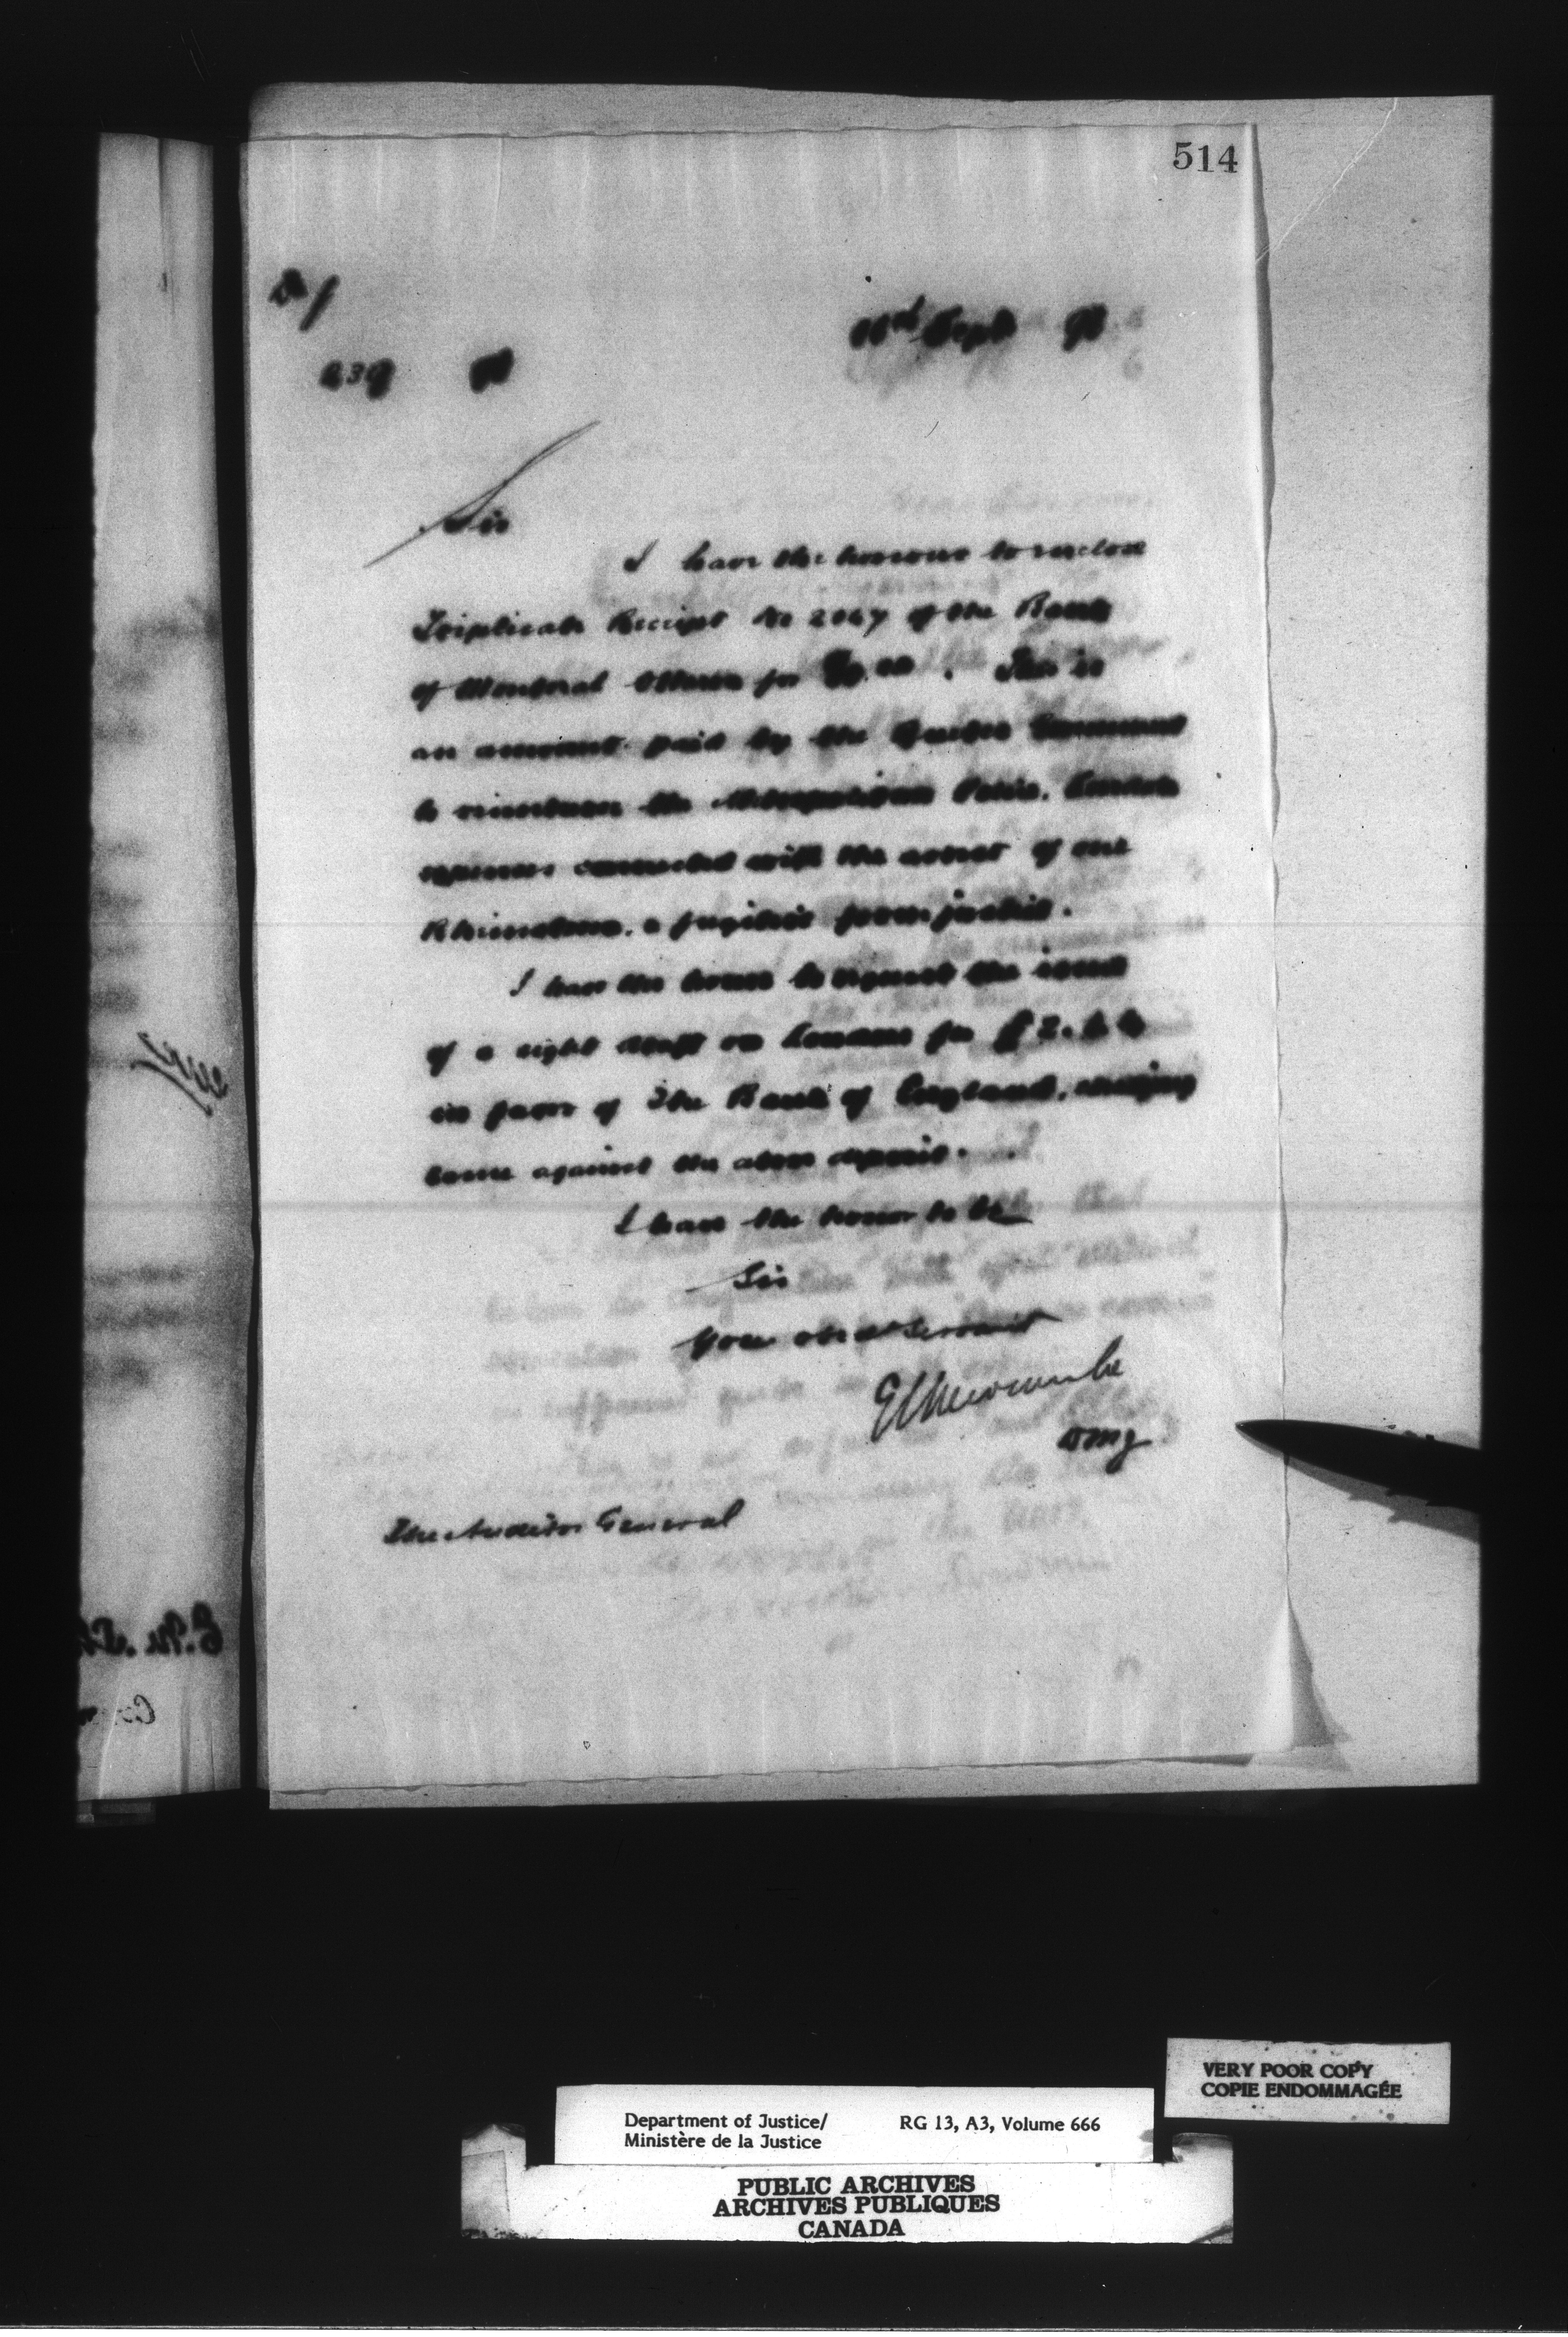 514
239
Sept 96
Sir
I have the honour to enclose
Triplicate Receipt No 2047 of the Bank
of Montreal Ottawa for This is
an amount paid by the Quebec Government
to reimburse the Metropolitan Police, London
expenses connected with the arrest of one
a fugitive from justice.
I have the honor to request the issue
of a sight draft on London for £2.
in favor of The Bank of England, charging
same against the above deposit.
I have the honor to be
Sir
Your obed Servant
E L Newcombe
DMJ
The Auditor General
VERY POOR COPY
COPIE ENDOMMAGÉE
Department of Justice/ RG 13, A3, Volume 666
Ministère de la Justice
PUBLIC ARCHIVES
ARCHIVES PUBLIQUES
CANADA